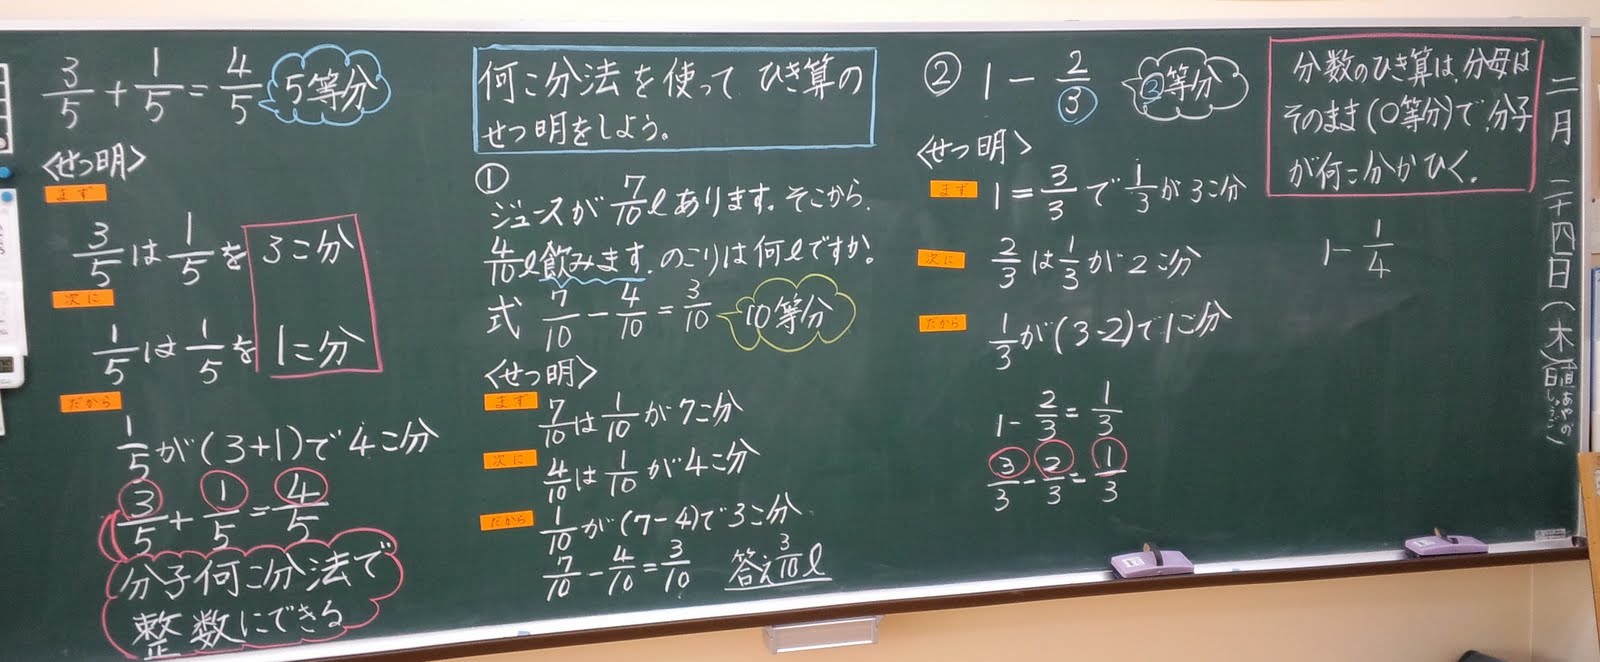 3/5 + 1/5 = 4/5
5等分
〈せつ明〉
まず
3/5は1/5を3こ分
次に
1/5は1/5を1こ分
だから
1/5が(3+1)で4こ分
3/5 + 1/5 = 4/5
分子何こ分法で
整数にできる
何こ分法を使ってひき算の
せつ明をしよう。
①
ジュースが7/10ℓあります。そこから、
4/10ℓ飲みます。のこりは何ℓですか。
式 7/10 − 4/10 = 3/10
10等分
〈せつ明〉
まず
7/10は1/10が7こ分
次に
4/10は1/10が4こ分
だから
1/10が(7−4)で3こ分
7/10 − 4/10 = 3/10 答え 3/10ℓ
② 1 − 2/3
③等分
〈せつ明〉
まず
1 = 3/3で1/3が3こ分
次に
2/3は1/3が2こ分
だから
1/3が(3-2)で1こ分
1 − 2/3 = 1/3
3/3 − 2/3 = 1/3
分数のひき算は、分母は
そのまま(○等分)で、分子
が何こ分かひく。
1 − 1/4
二月二十四日(木)
日直